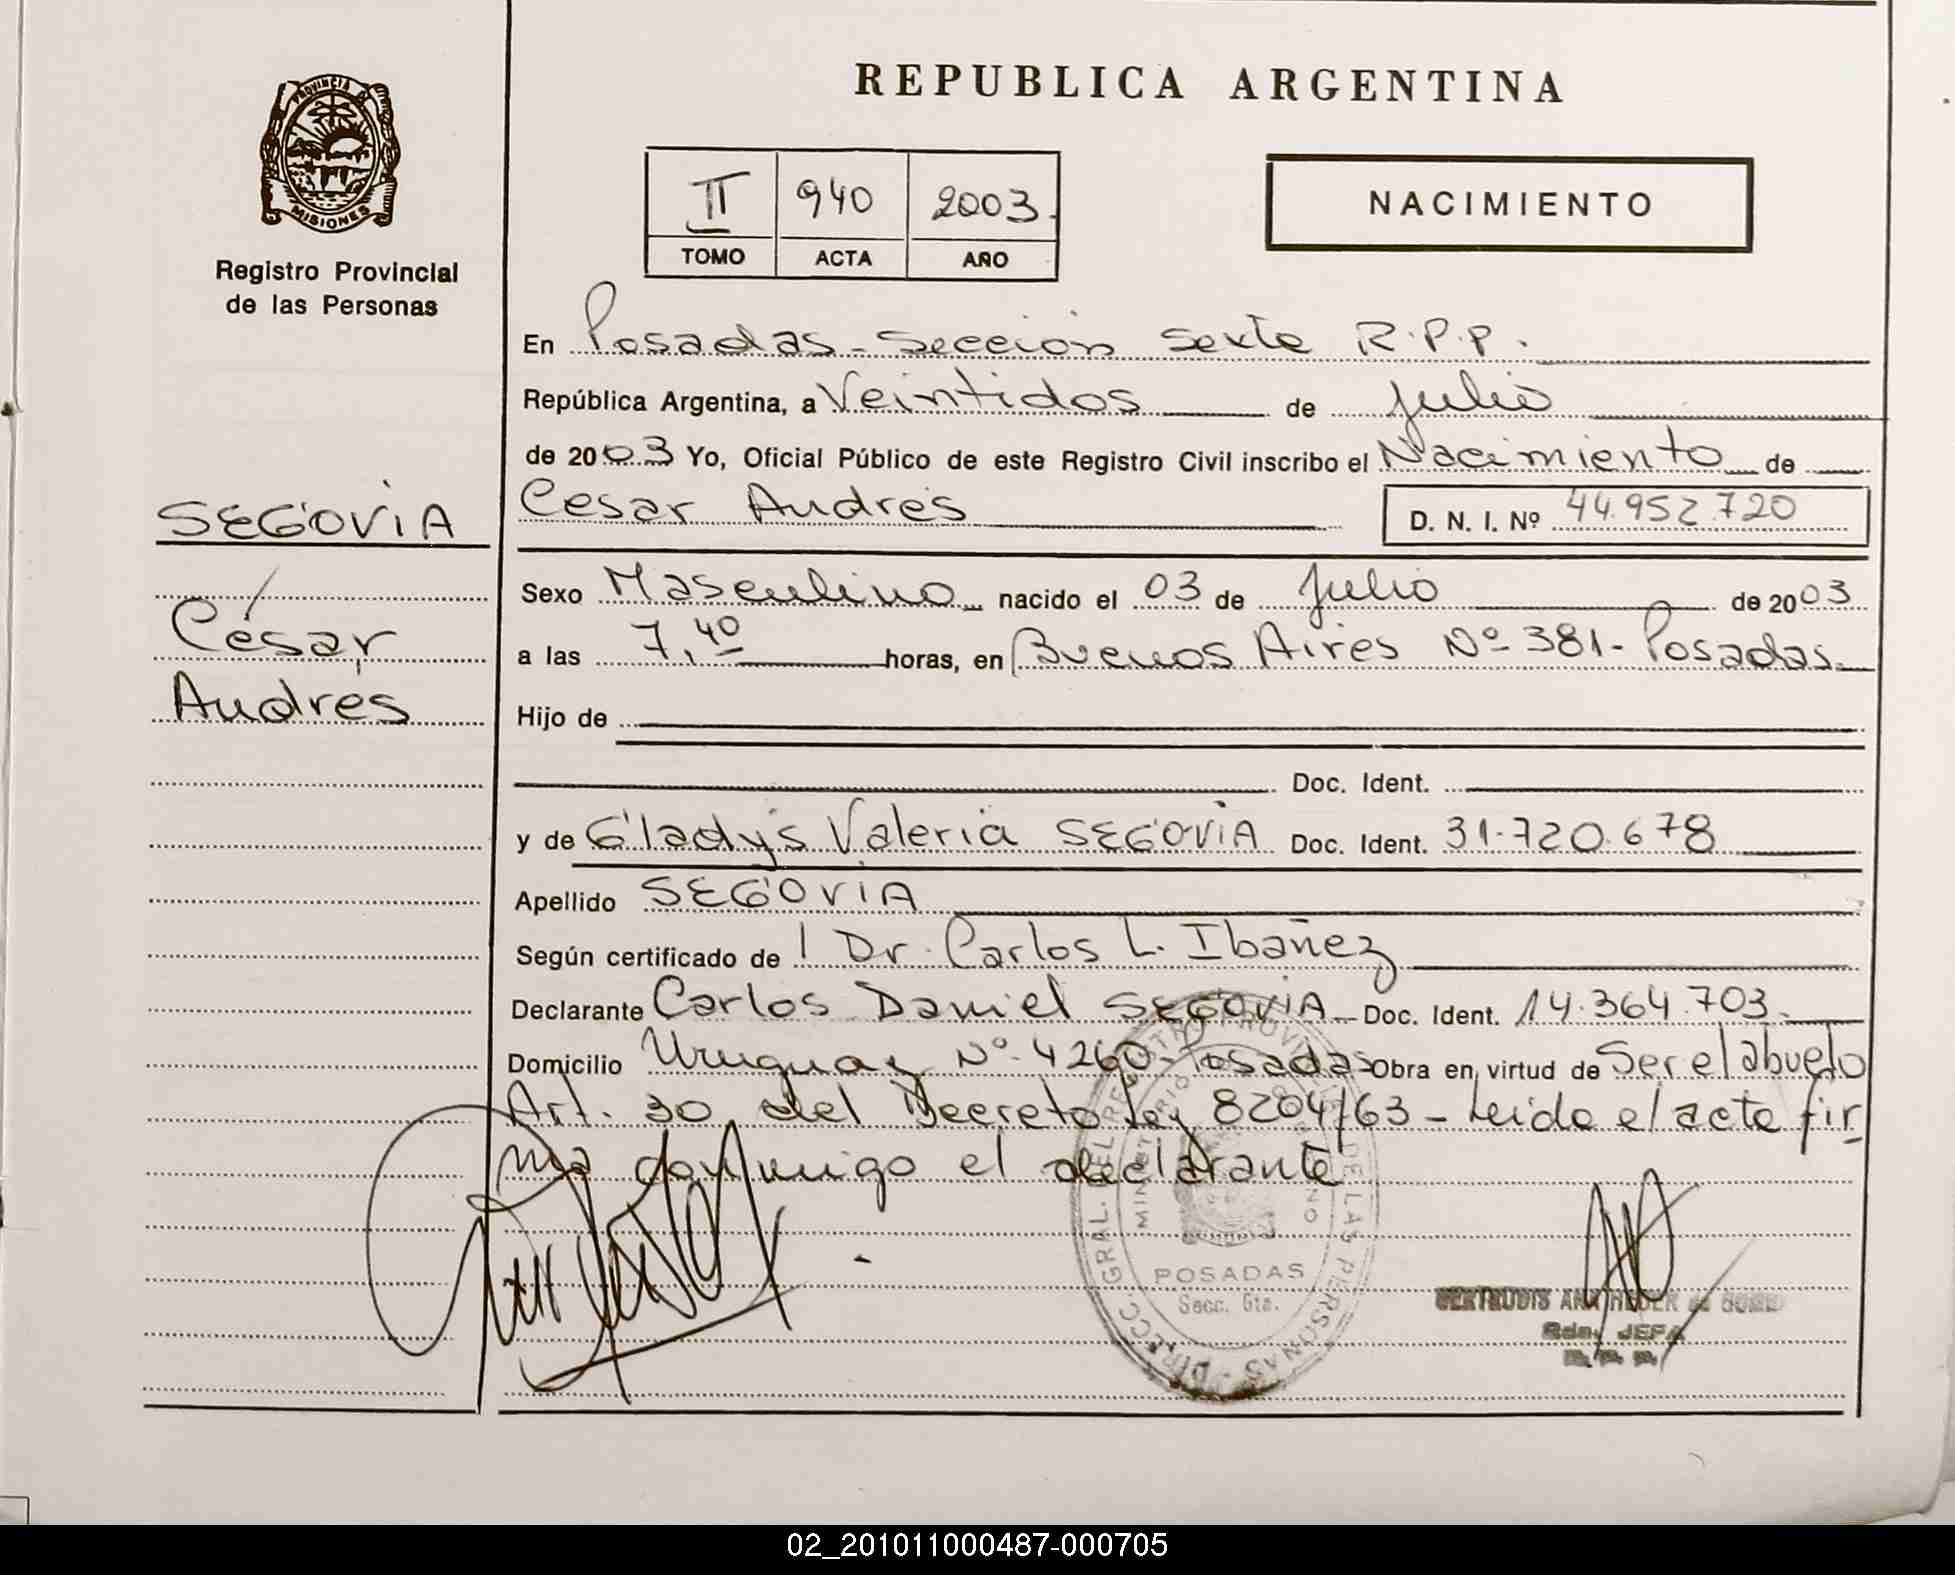 REPUBLICA ARGENTINA
PROVINCIA DE
MISIONES
Registro Provincial
de las Personas
II 940 2003
TOMO ACTA AÑO
NACIMIENTO
En Posadas - Sección Sexta R.P.P.
República Argentina, a Veintidos de Julio
de 2003 Yo, Oficial Público de este Registro Civil inscribo el Nacimiento de
Cesar Andrés D. N. I. Nº 44.952.720
SEGOVIA
César
Andrés
Sexo Masculino nacido el 03 de Julio de 2003
a las 7,40 horas, en Buenos Aires Nº 381 - Posadas
Hijo de
Doc. Ident.
y de Gladys Valeria SEGOVIA Doc. Ident. 31.720.678
Apellido SEGOVIA
Según certificado de l Dr. Carlos L. Ibañez
Declarante Carlos Daniel SEGOVIA Doc. Ident. 14.364.703.
Domicilio Uruguay Nº 4260 - Posadas Obra en virtud de Ser el abuelo
Art. 30 del Decreto Ley 8204/63 - Leida el acta fir
ma conmigo el declarante
DIRECC. GRAL. DEL REGISTRO PROVINCIAL DE LAS PERSONAS
POSADAS
Secc. 6ta.
GERTRUDIS ANA
JEFA
02_201011000487-000705